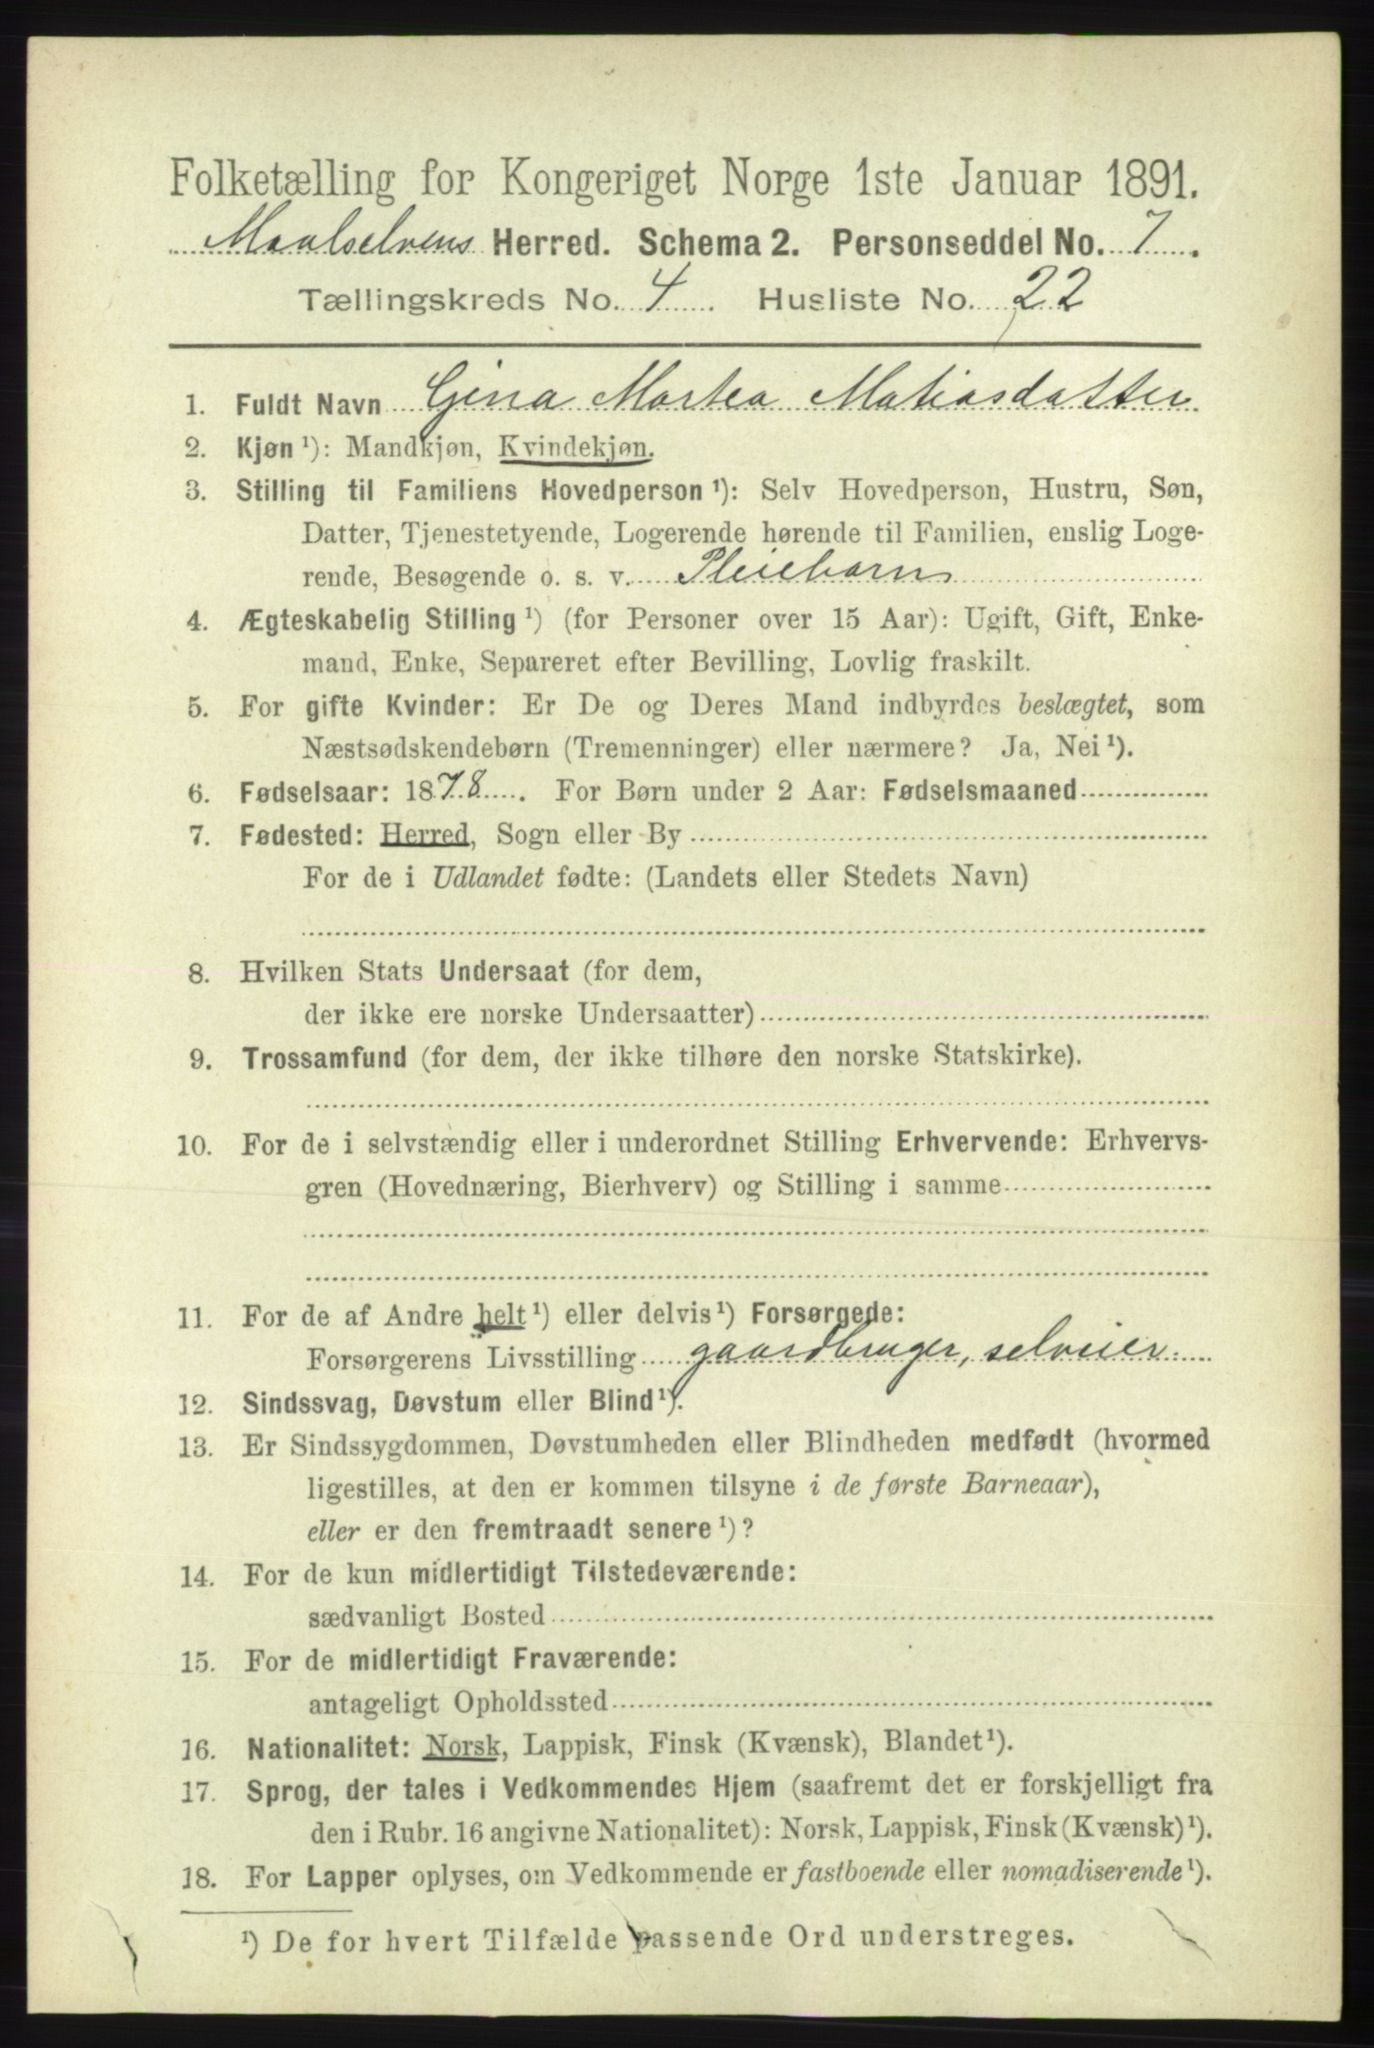 Folketælling for Kongeriget Norge 1ste Januar 1891.
Maalselvens Herred. Schema 2. Personseddel No. 7.
Tællingskreds No. 4. Husliste No. 22
1. Fuldt Navn Gina Martea Matiasdatter
2. Kjøn ¹): Mandkjøn, Kvindekjøn.
3. Stilling til Familiens Hovedperson ¹): Selv Hovedperson, Hustru, Søn,
Datter, Tjenestetyende, Logerende hørende til Familien, enslig Loge-
rende, Besøgende o. s. v. Pleiebarn
4. Ægteskabelig Stilling ¹) (for Personer over 15 Aar): Ugift, Gift, Enke-
mand, Enke, Separeret efter Bevilling, Lovlig fraskilt.
5. For gifte Kvinder: Er De og Deres Mand indbyrdes beslægtet, som
Næstsødskendebørn (Tremenninger) eller nærmere? Ja, Nei ¹).
6. Fødselsaar: 1878. For Børn under 2 Aar: Fødselsmaaned
7. Fødested: Herred, Sogn eller By
For de i Udlandet fødte: (Landets eller Stedets Navn)
8. Hvilken Stats Undersaat (for dem,
der ikke ere norske Undersaatter)
9. Trossamfund (for dem, der ikke tilhøre den norske Statskirke).
10. For de i selvstændig eller i underordnet Stilling Erhvervende: Erhvervs-
gren (Hovednæring, Bierhverv) og Stilling i samme
11. For de af Andre helt ¹) eller delvis ¹) Forsørgede:
Forsørgerens Livsstilling gaardbruger, selveier.
12. Sindssvag, Døvstum eller Blind ¹).
13. Er Sindssygdommen, Døvstumheden eller Blindheden medfødt (hvormed
ligestilles, at den er kommen tilsyne i de første Barneaar),
eller er den fremtraadt senere ¹)?
14. For de kun midlertidigt Tilstedeværende:
sædvanligt Bosted
15. For de midlertidigt Fraværende:
antageligt Opholdssted
16. Nationalitet: Norsk, Lappisk, Finsk (Kvænsk), Blandet ¹).
17. Sprog, der tales i Vedkommendes Hjem (saafremt det er forskjelligt fra
den i Rubr. 16 angivne Nationalitet): Norsk, Lappisk, Finsk (Kvænsk) ¹).
18. For Lapper oplyses, om Vedkommende er fastboende eller nomadiserende ¹).
¹) De for hvert Tilfælde passende Ord understreges.